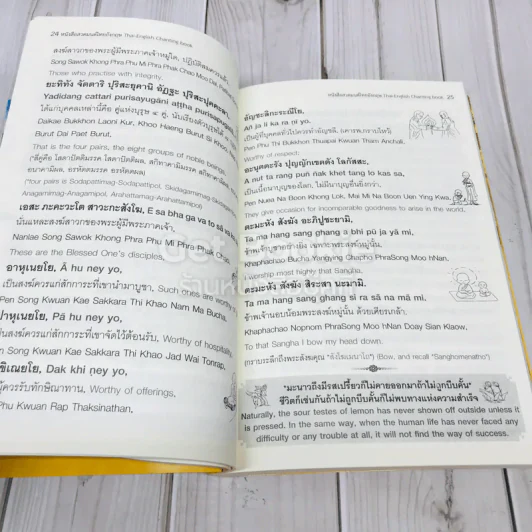 24 หนังสือสวดมนต์ไทยอังกฤษ Thai-English Chanting book
สงฆ์สาวกของพระผู้มีพระภาคเจ้าหมู่ใด, ปฏิบัติสมควรแล้ว
Song Sawok Khong Phra Phu Mi Phra Phak Chao Moo Dai,
Those who practise with integrity.
ยะทิทัง จัตตาริ ปุริสะยุคานิ อัฏฐะ ปุริสะปุคคะลา,
Yadidang cattari purisayugāni aṭṭha purisapuggalā,
ได้แก่บุคคลเหล่านี้คือ คู่แห่งบุรุษ ๔ คู่, นับเรียงตัวบุรุษได้
Daikae Bukkhon Laoni Kur, Khoo Haeng Burut Si Khoo,
Burut Dai Paet Burut.
That is the four pairs, the eight groups of noble beings.
Anagamimag-Anagamipol, Arahattamag-Arahattapol)
เอสะ ภะคะวะโต สาวะกะสังโฆ, E sa bha ga va to sā va ka
นั่นแหละสงฆ์สาวกของพระผู้มีพระภาคเจ้า,
Nanlae Song Sawok Khong Phra Phu Mi Phra Phak Chao,
These are the Blessed One's disciples.
อาหุเนยโย, Ā hu ney yo,
เป็นสงฆ์ควรแก่สักการะที่เขานำมาบูชา, Such ones are worthy
Pen Song Kuan Kae Sakkara Thi Khao Nam Ma Bucha,
ปาหุเนยโย, Pā hu ney yo,
เป็นสงฆ์ควรแก่สักการะที่เขาจัดไว้ต้อนรับ, Worthy of hospitality,
Song Kuan Kae Sakkara Thi Khao Jad Wai Tonrap,
Dak khi ṇey yo,
ผู้ควรรับทักษิณาทาน, Worthy of offerings.
Phu Kwuan Rap Thaksinathan.
หนังสือสวดมนต์ไทยอังกฤษ Thai-English Chanting book 25
อัญชะลิกะระณีโย,
Añ ja li ka ra ṇī yo,
เป็นผู้ที่บุคคลทั่วไปควรทำอัญชลี,
Pen Phu Thi Bukkhon Thuapai Kwuan Tham Anchali.
Worthy of respect,
อะนุตตะรัง ปุญญักเขตตัง โลกัสสะ,
A nut ta rang puñ ñak khet tang lo kas sa,
เป็นเนื้อนาบุญของโลก, ไม่มีนาบุญอื่นยิ่งกว่า,
Pen Nuea Na Boon Khong Lok, Mai Mi Na Boon Uen Ying Kwa,
They give occasion for incomparable goodness to arise in the world,
ตะมะหัง สังฆัง อะภิปูชะยามิ,
Ta ma hang sang ghang a bhi pū ja yā mi,
ข้าพเจ้าบูชาอย่างยิ่ง เฉพาะพระสงฆ์หมู่นั้น,
Khaphachao Bucha Yangying Chapho PhraSong Moo hNan,
I worship most highly that Sangha,
ตะมะหัง สังฆัง สิระสา นะมามิ.
Ta ma hang sang ghang si ra sā na mā mi,
ข้าพเจ้านอบน้อมพระสงฆ์หมู่นั้น ด้วยเศียรเกล้า
Khaphachao Nopnom PhraSong Moo hNan Doay Sian Klaow,
To that Sangha I bow my head down.
(กราบระลึกถึงพระสังฆคุณ "สังโฆเมนาโถ") (Bow, and recall "Sanghomenatho")
"มะนาวถึงมีรสเปรี้ยวก็ไม่คายออกมาถ้าไม่ถูกบีบคั้น"
ชีวิตก็เช่นกันถ้าไม่ถูกบีบคั้นก็ไม่พบทางแห่งความสำเร็จ
Naturally, the sour testes of lemon has never shown off outside unless it
is pressed. In the same way, when the human life has never faced any
difficulty or any trouble at all, it will not find the way of success.